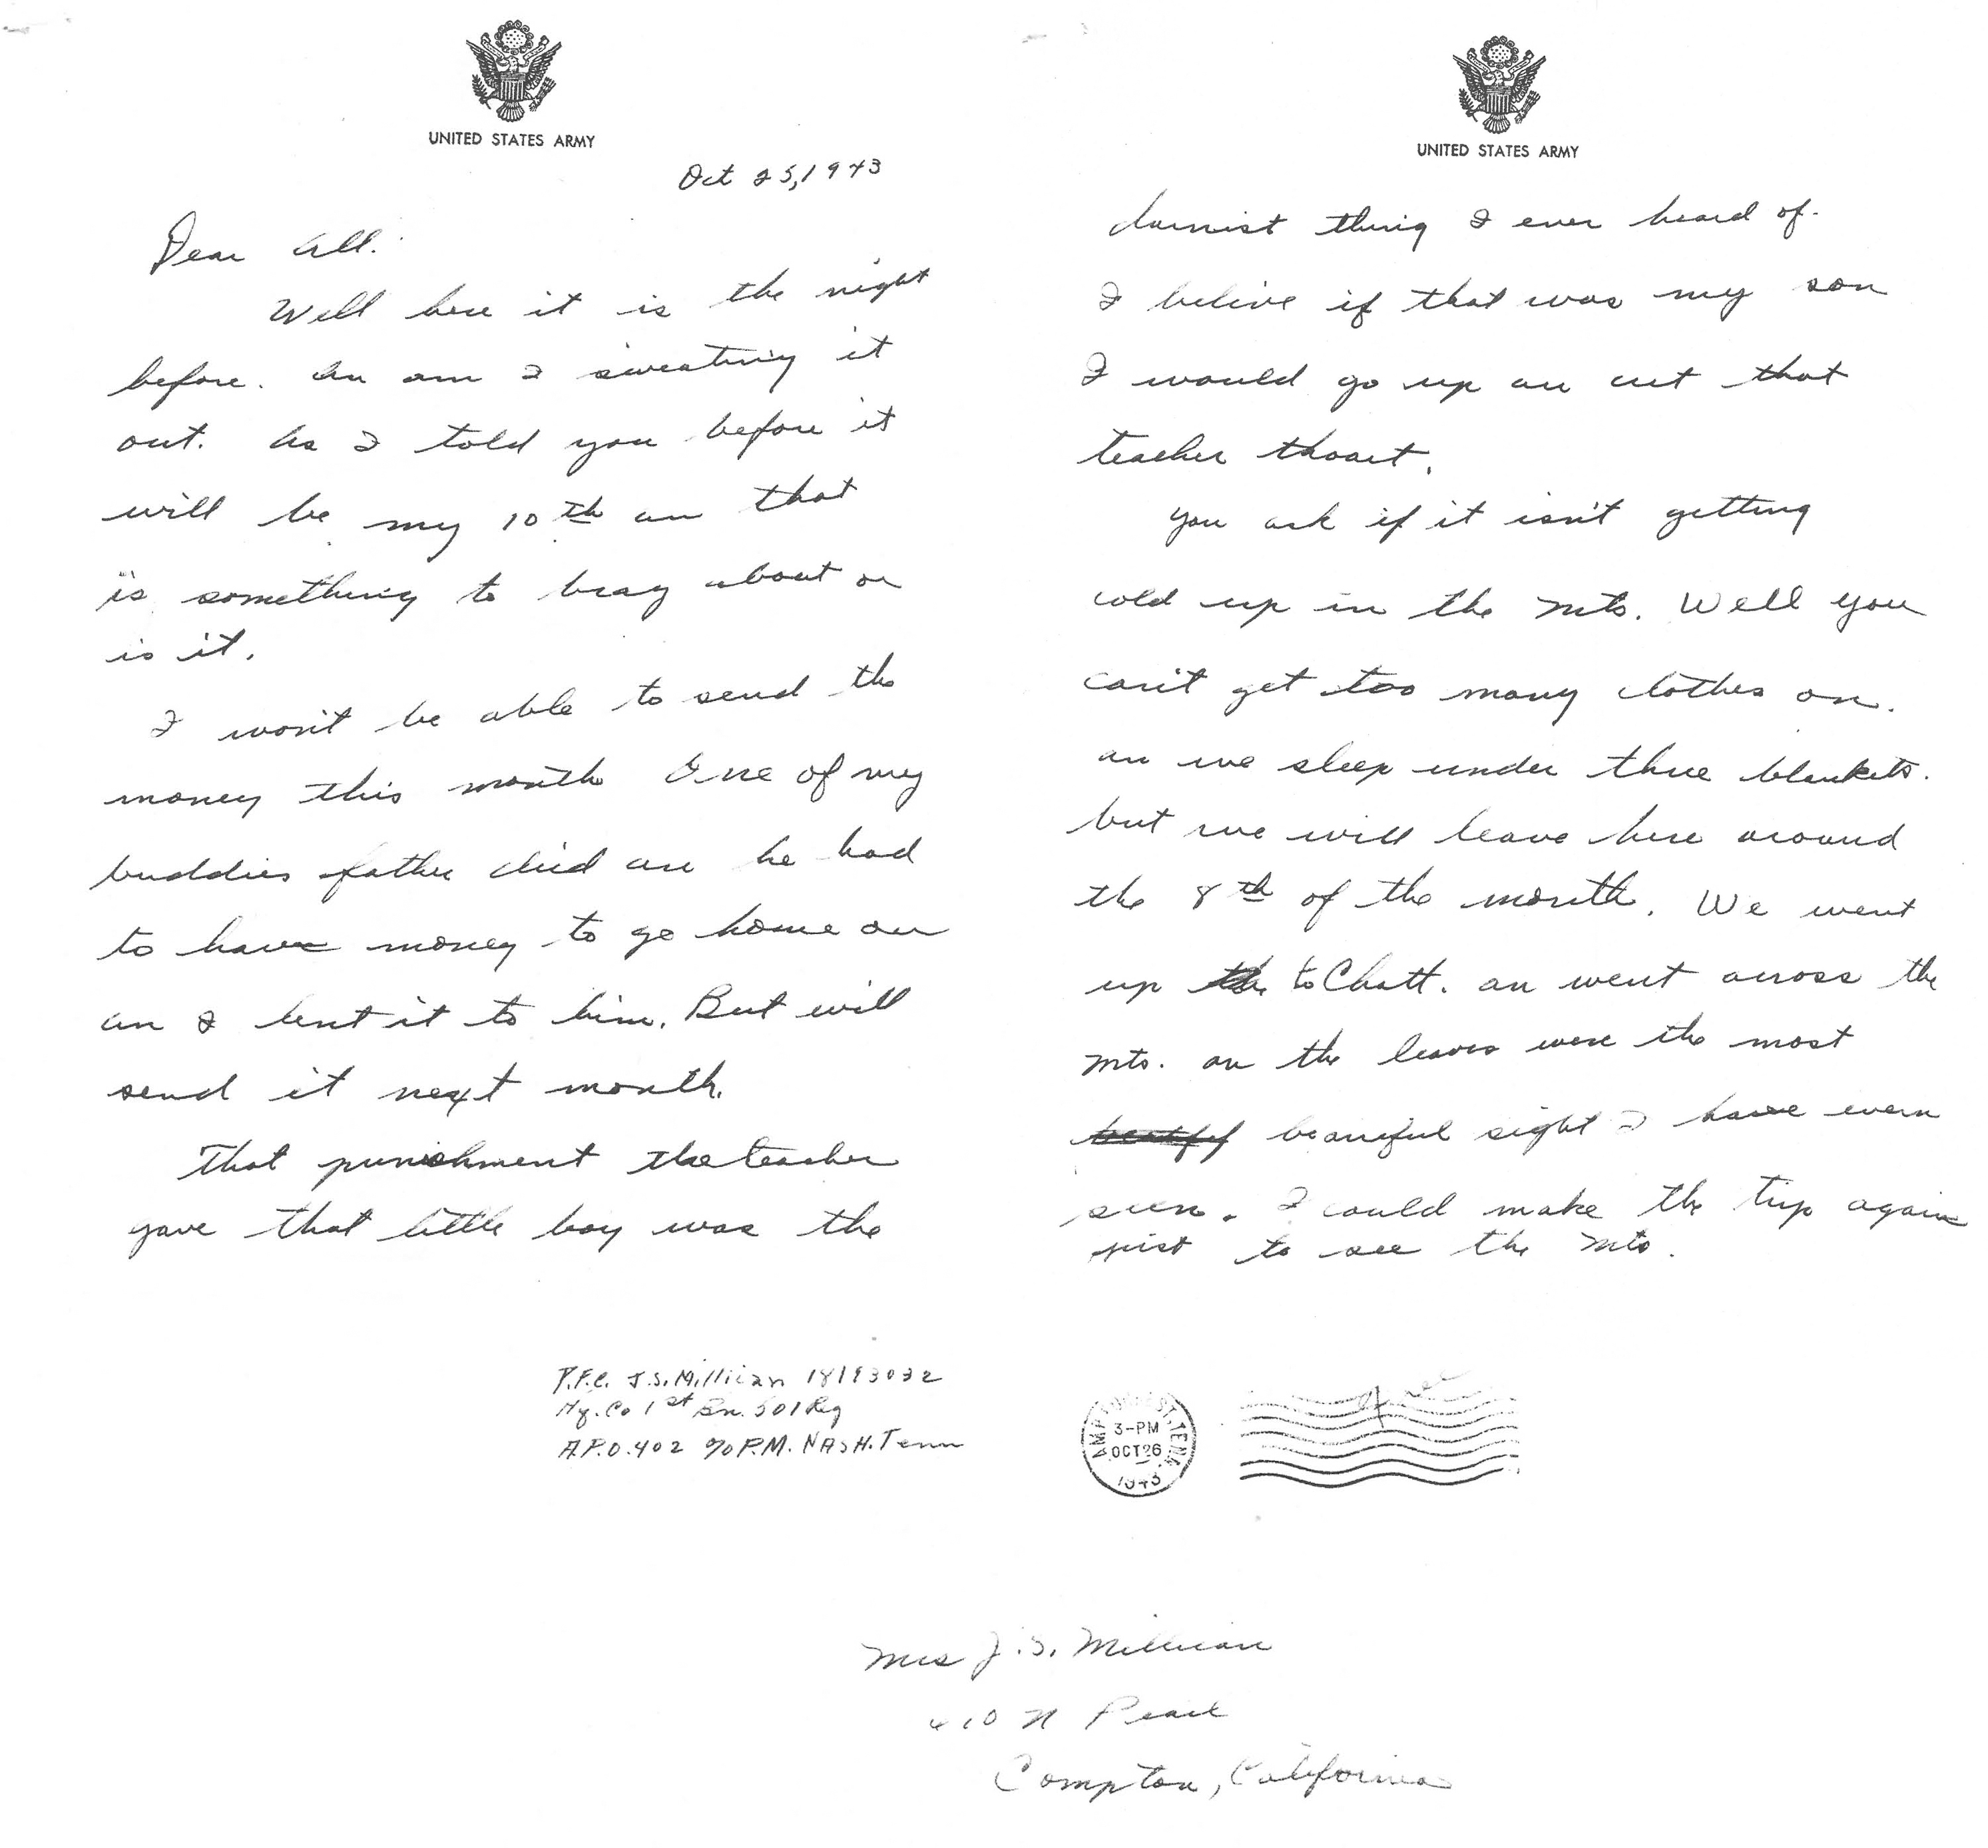 UNITED STATES ARMY
Oct 25, 1943
Dear All:
Well here it is the night
before. An am I sweating it
out. As I told you before it
will be my 10th an that
is something to brag about or
is it.
I won't be able to send the
money this month One of my
buddies father died an he had
to have money to go home on
an I lent it to him. But will
send it next month.
That punishment the teacher
gave that little boy was the
UNITED STATES ARMY
darnist thing I ever heard of.
I belive if that was my son
I would go up an cut that
teacher thoart.
You ask if it isn't getting
cold up in the mts. Well you
can't get too many clothes on.
an we sleep under three blankets.
but we will leave here around
the 8th of the month. We went
up to Chatt. an went across the
mts. an the leaves were the most
beauiful sight I have evern
seen. I could make the trip again
just to see the mts.
P.F.C. J.S. Millican 18193032
Hq. Co 1st Bn. 501 Reg
A.P.O. 402 % P.M. NASH. Tenn
CAMP FORREST, TENN.
3-PM
OCT 26
1943
Free
Mrs J.S. Millican
410 N Pearl
Compton, California